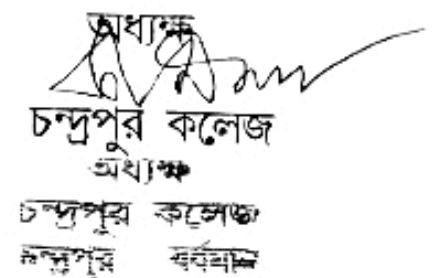 অধ্যক্ষ
চন্দ্রপুর কলেজ
অধ্যক্ষ
চন্দ্রপুর কলেজ
চন্দ্রপুর বর্ধমান